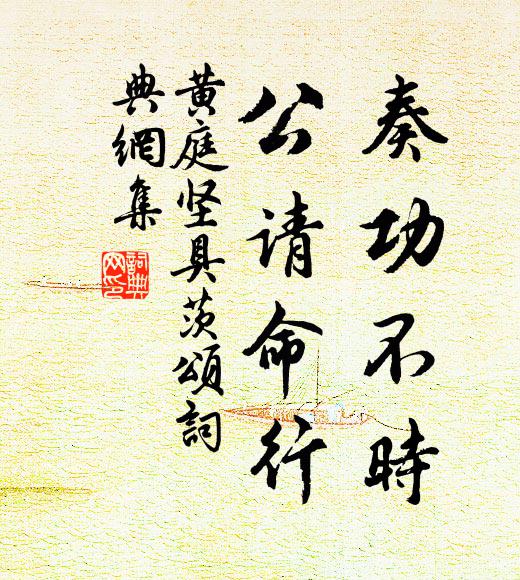 奏功不時
公请命行
黄庭坚具茨頌詞
典網集
詞典
网印